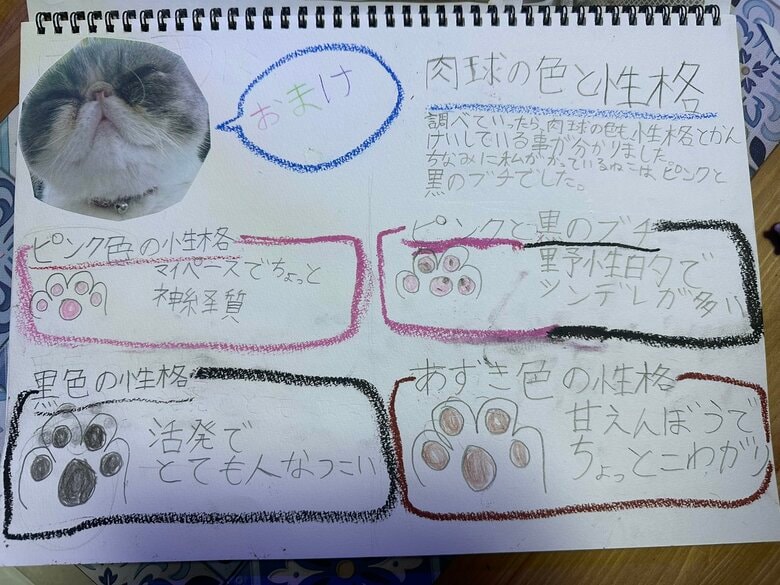 おまけ
肉球の色と性格
調べていったら、肉球の色も性格とかん
けいしている事が分かりました。
ちなみに私がかっているねこは、ピンクと
黒のブチでした。
ピンク色の性格
マイペースでちょっと
神経質
ピンクと黒のブチ
野性的で
ツンデレが多い
黒色の性格
活発で
とても人なつこい
あずき色の性格
甘えんぼうで
ちょっとこわがり